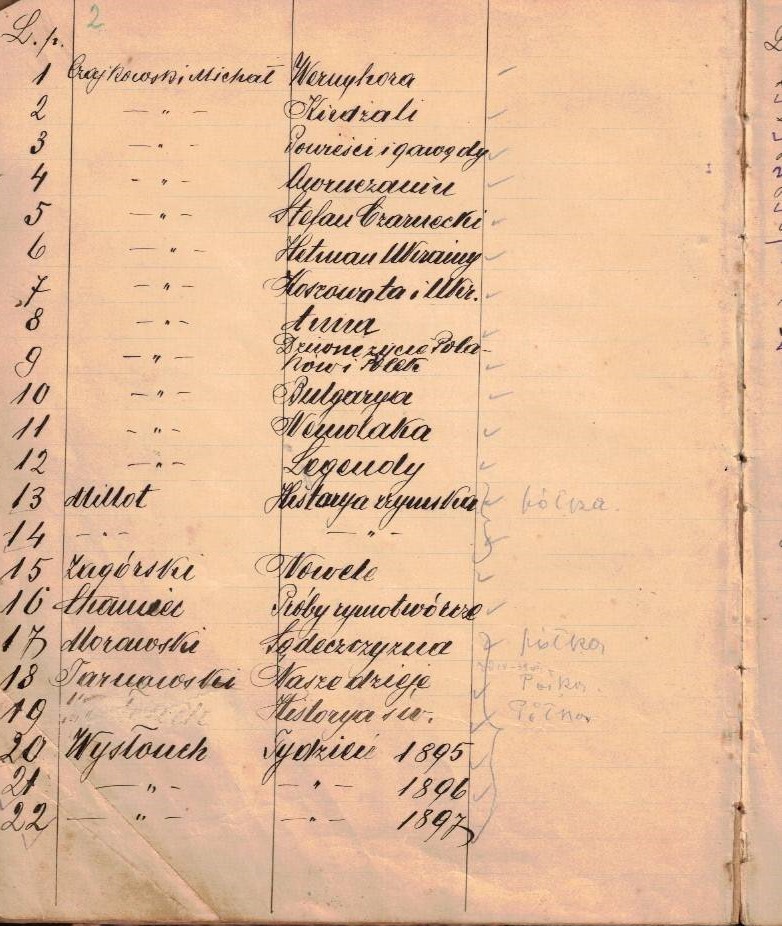 2
L. p.
1 Czajkowski Michał Wernyhora
2 — " — Kirdżali
3 — " — Powieści i gawędy
4 — " —
5 — " — Stefan Czarnecki
6 — " — Hetman Ukrainy
7 — " — Koszowata i Ukr.
8 — " — Anna
9 — " — Dziwne życie Pola-
ków i Polek
10 — " — Bulgarya
11 — " — Nemolaka
12 — " — Legendy
13 Millot Historya rzymska półka.
14 — " — — " —
15 Zagórski Nowele
16 Próby rymotwórcze
17 Morawski Sądeczczyzna półka
18 Tarnawski Nasze dzieje Półka.
19 Historya św. Półka
20 Wysłouch Tydzień 1895
21 — " — — " — 1896
22 — " — — " — 1897